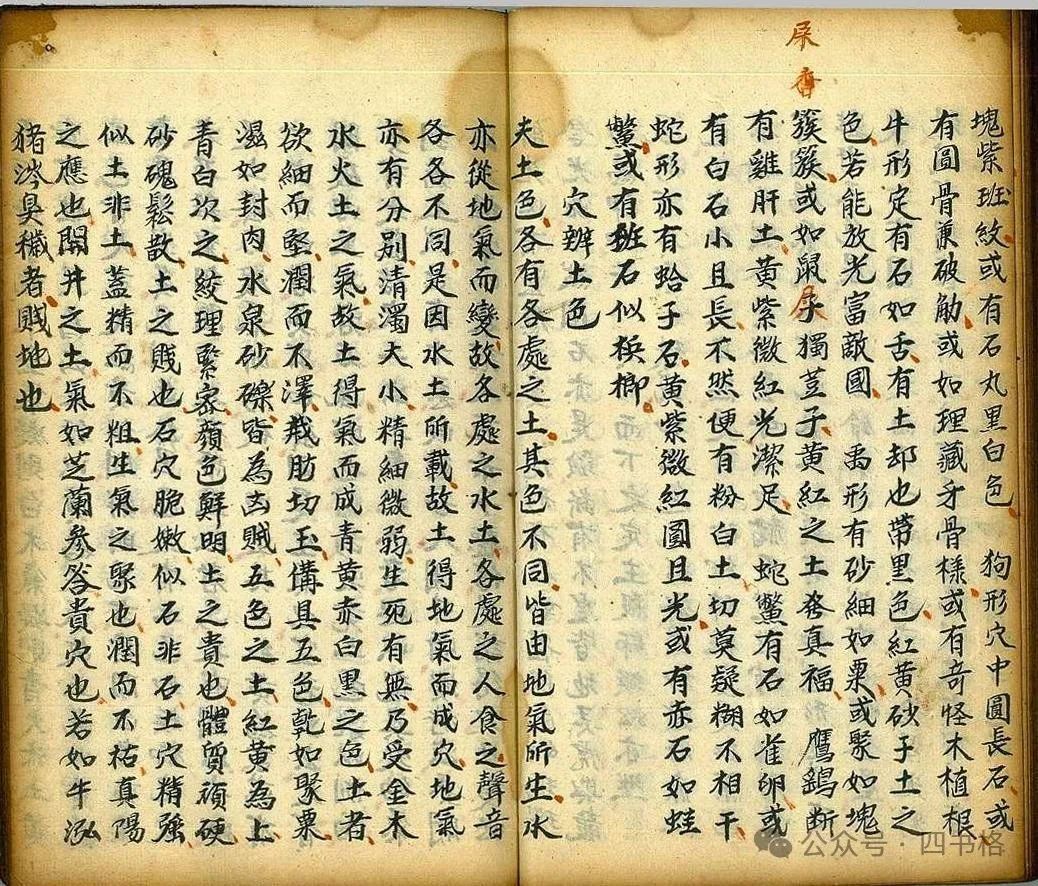 屎香
塊紫班紋或有石丸黑白色 狗形穴中圓長石或
有圓骨兼破觔或如理藏牙骨樣或有奇怪木植根
牛形定有石如舌有土却也帶黑色紅黃砂子土之
色若能放光富敵國 禹形有砂細如粟或聚如塊
簇簇或如鼠屎子獨荳子黃紅之土發真福 鷹鷂斷
有雞肝土黃紫微紅光潔足 蛇鱉有石如雀卵或
有白石小且長不然便有粉白土切莫疑糊不相干
蛇形亦有蛤子石黃紫微紅圓且光或有赤石如蛙
鱉或有班石似槟榔
穴辨土色
夫土色各有各處之土其色不同皆由地氣所生水
亦從地氣而變故各處之水土各處之人食之聲音
各各不同是因水土所載故土得地氣而成穴地氣
亦有分別清濁大小精細微弱生死有無乃受金木
水火土之氣故土得氣而成青黃赤白黑之色土者
欲細而堅潤而不澤裁肪切玉備具五色乾如聚粟
濕如封肉水泉砂礫皆為凶賊五色之土紅黃為上
青白次之絞理緊密顏色鮮明土之貴也體質頑硬
砂磈鬆散土之賤也石穴脆嫩似石非石土穴精強
似土非土蓋精而不粗生氣之聚也潤而不枯真陽
之應也開井之土氣如芝蘭參苓貴穴也若如牛泓
猪涔臭穢者賤地也
公众号·四书格